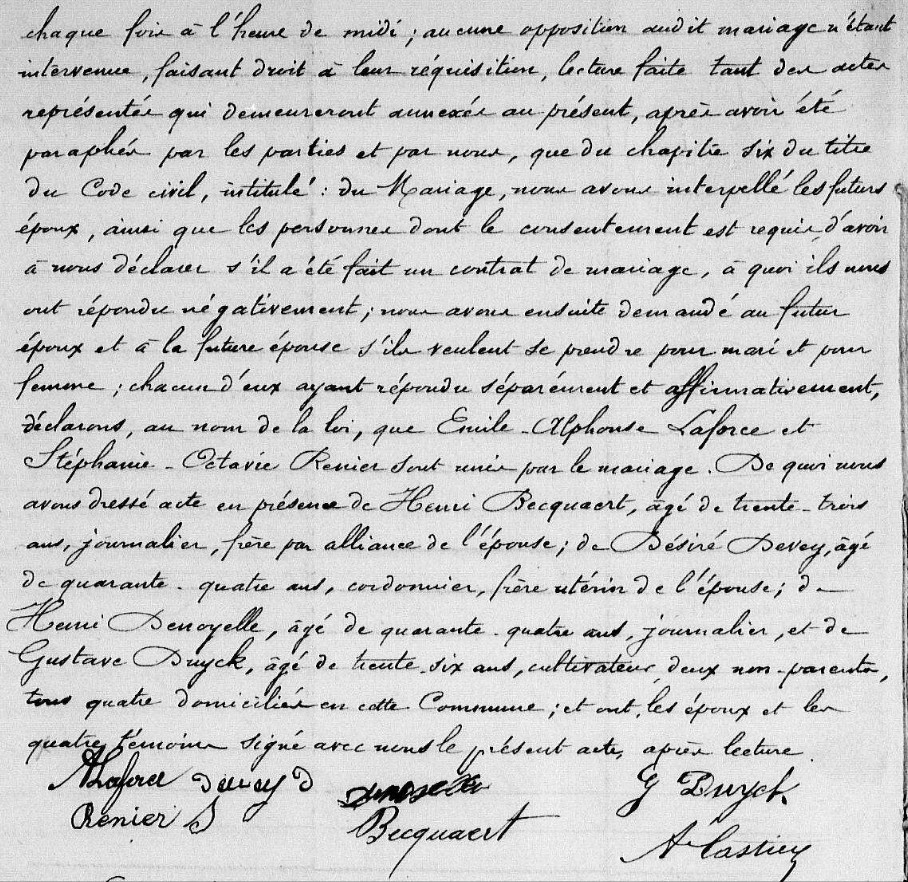 chaque fois à l'heure de midi ; aucune opposition audit mariage n'étant
intervenue, faisant droit à leur réquisition, lecture faite tant des actes
représentés qui demeureront annexés au présent, après avoir été
paraphés par les parties et par nous, que du chapitre six du titre
du Code civil, intitulé : du Mariage, nous avons interpellé les futurs
époux, ainsi que les personnes dont le consentement est requis, d'avoir
à nous déclarer s'il a été fait un contrat de mariage, à quoi ils nous
ont répondu négativement ; nous avons ensuite demandé au futur
époux et à la future épouse s'ils veulent se prendre pour mari et pour
femme ; chacun d'eux ayant répondu séparément et affirmativement,
déclarons, au nom de la loi, que Emile-Alphonse Laforce et
Stéphanie-Octavie Renier sont unis par le mariage. De quoi nous
avons dressé acte en présence de Henri Becquaert, âgé de trente-trois
ans, journalier, frère par alliance de l'épouse ; de Désiré Devey, âgé
de quarante-quatre ans, cordonnier, frère utérin de l'épouse ; de
Henri Denoyelle, âgé de quarante-quatre ans, journalier, et de
Gustave Duyck, âgé de trente-six ans, cultivateur, deux non-parents,
tous quatre domiciliés en cette Commune ; et ont, les époux et les
quatre témoins signé avec nous le présent acte, après lecture.
Laforce Devey D G Duyck
Renier S Becquaert